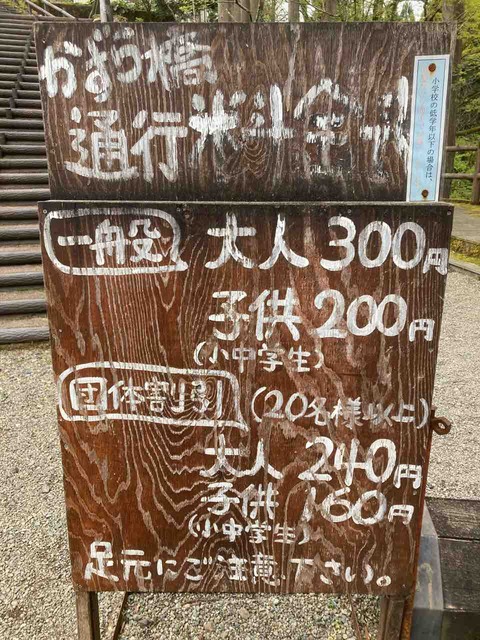 かずら橋
通行料金
小学校の低学年以下の場合は、
一般 大人 300円
子供 200円
(小中学生)
団体割引 (20名様以上)
大人 240円
子供 160円
(小中学生)
足元にご注意下さい。